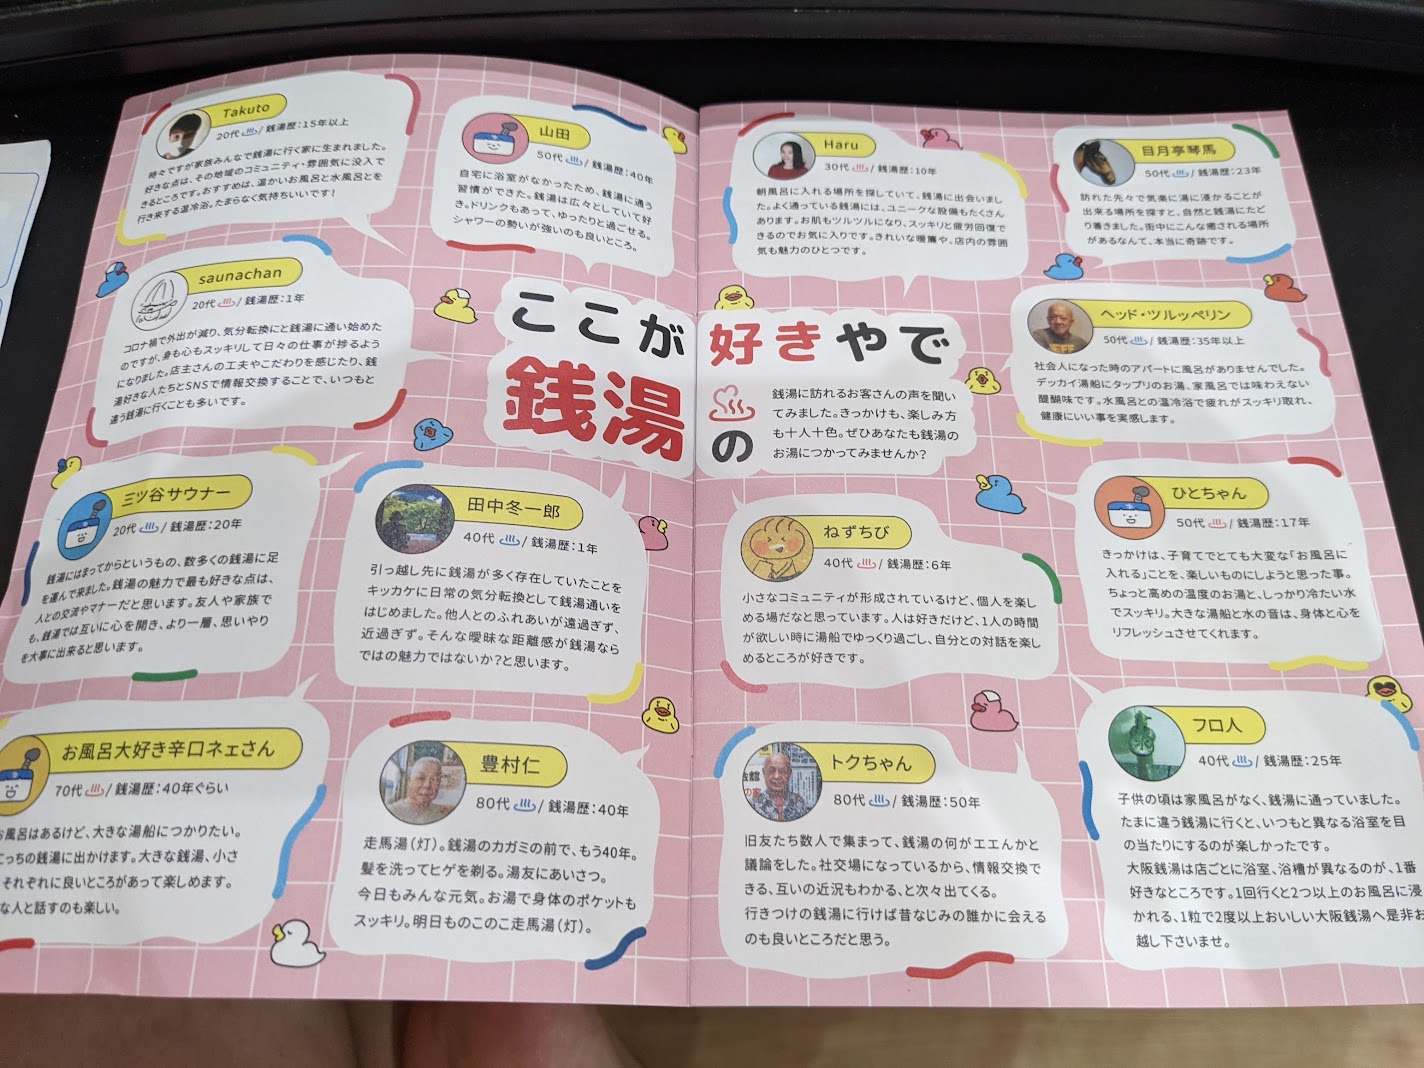 Takuto
20代 / 銭湯歴：15年以上
時々ですが家族みんなで銭湯に行く家に生まれました。
好きな点は、その地域のコミュニティ・雰囲気に没入で
きるところです。おすすめは、温かいお風呂と水風呂とを
行き来する温冷浴。たまらなく気持ちいいです！
山田
50代 / 銭湯歴：40年
自宅に浴室がなかったため、銭湯に通う
習慣ができた。銭湯は広々としていて好
き。ドリンクもあって、ゆったりと過ごせる。
シャワーの勢いが強いのも良いところ。
saunachan
20代 / 銭湯歴：1年
コロナ禍で外出が減り、気分転換にと銭湯に通い始めた
のですが、身も心もスッキリして日々の仕事が捗るように
なりました。店主さんの工夫やこだわりを感じたり、銭
湯好きな人たちとSNSで情報交換することで、いつもと
違う銭湯に行くことも多いです。
三ツ谷サウナー
20代 / 銭湯歴：20年
銭湯にはまってからというもの、数多くの銭湯に足
を運んで来ました。銭湯の魅力で最も好きな点は、
人との交流やマナーだと思います。友人や家族で
も、銭湯では互いに心を開き、より一層、思いやり
を大事に出来ると思います。
田中冬一郎
40代 / 銭湯歴：1年
引っ越し先に銭湯が多く存在していたことを
キッカケに日常の気分転換として銭湯通いを
はじめました。他人とのふれあいが遠過ぎず、
近過ぎず。そんな曖昧な距離感が銭湯なら
ではの魅力ではないか？と思います。
お風呂大好き辛口ネェさん
70代 / 銭湯歴：40年ぐらい
お風呂はあるけど、大きな湯船につかりたい。
こっちの銭湯に出かけます。大きな銭湯、小さ
それぞれに良いところがあって楽しめます。
な人と話すのも楽しい。
豊村仁
80代 / 銭湯歴：40年
走馬湯（灯）。銭湯のカガミの前で、もう40年。
髪を洗ってヒゲを剃る。湯友にあいさつ。
今日もみんな元気。お湯で身体のポケットも
スッキリ。明日ものこのこ走馬湯（灯）。
ここが好きやで
銭湯の
銭湯に訪れるお客さんの声を聞い
てみました。きっかけも、楽しみ方
も十人十色。ぜひあなたも銭湯の
お湯につかってみませんか？
Haru
30代 / 銭湯歴：10年
朝風呂に入れる場所を探していて、銭湯に出会いまし
た。よく通っている銭湯には、ユニークな設備もたくさん
あります。お肌もツルツルになり、スッキリと疲労回復で
きるのでお気に入りです。きれいな暖簾や、店内の雰囲
気も魅力のひとつです。
目月亭琴馬
50代 / 銭湯歴：23年
訪れた先々で気楽に湯に浸かることが
出来る場所を探すと、自然と銭湯にたど
り着きました。街中にこんな癒される場所
があるなんて、本当に奇跡です。
ヘッド・ツルッペリン
50代 / 銭湯歴：35年以上
社会人になった時のアパートに風呂がありませんでした。
デッカイ湯船にタップリのお湯、家風呂では味わえない
醍醐味です。水風呂との温冷浴で疲れがスッキリ取れ、
健康にいい事を実感します。
ねずちび
40代 / 銭湯歴：6年
小さなコミュニティが形成されているけど、個人を楽し
める場だなと思っています。人は好きだけど、1人の時間
が欲しい時に湯船でゆっくり過ごし、自分との対話を楽し
めるところが好きです。
ひとちゃん
50代 / 銭湯歴：17年
きっかけは、子育てでとても大変な「お風呂に
入れる」ことを、楽しいものにしようと思った事。
ちょっと高めの温度のお湯と、しっかり冷たい水
でスッキリ。大きな湯船と水の音は、身体と心を
リフレッシュさせてくれます。
トクちゃん
80代 / 銭湯歴：50年
旧友たち数人で集まって、銭湯の何がエエんかと
議論をした。社交場になっているから、情報交換で
きる、互いの近況もわかる、と次々出てくる。
行きつけの銭湯に行けば昔なじみの誰かに会える
のも良いところだと思う。
フロ人
40代 / 銭湯歴：25年
子供の頃は家風呂がなく、銭湯に通っていました。
たまに違う銭湯に行くと、いつもと異なる浴室を目
の当たりにするのが楽しかったです。
大阪銭湯は店ごとに浴室、浴槽が異なるのが、1番
好きなところです。1回行くと2つ以上のお風呂に浸
かれる、1粒で2度以上おいしい大阪銭湯へ是非お
越し下さいませ。